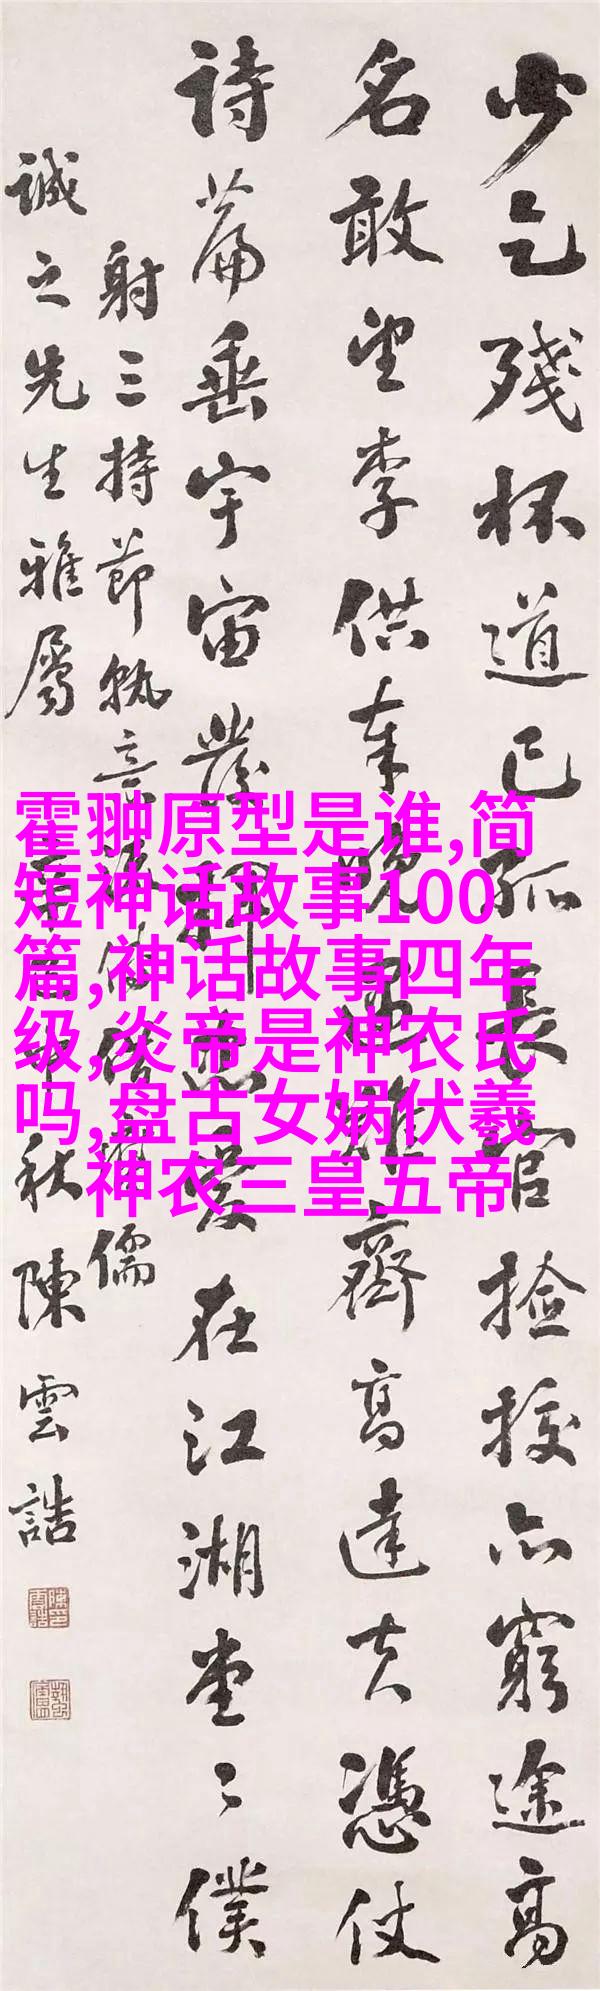 少乞殘杯道已孤長官檢校亦窮途高
名敢望李供奉晚遇難齊高達夫憑仗
詩篇垂宇宙發揮忠愛在江湖堂〻僕
射三持節孰意借儒
誠之先生雅屬秋陳雲誥
霍翀原型是谁,简
短神话故事100
篇,神话故事四年
级,炎帝是神农氏
吗,盘古女娲伏羲
神农三皇五帝